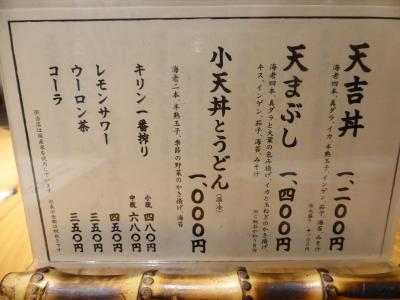 天吉丼 一、二〇〇円
海老四本、真ダラ、イカ、半熟玉子、インゲン、茄子、海苔 みそ汁
天まぶし 一、四〇〇円
海老四本、真ダラと大葉の包み揚げ、イカと玉ねぎのかき揚げ、
キス、インゲン、茄子、海苔、みそ汁
小天丼とうどん（温・冷） 一、〇〇〇円
海老二本、半熟玉子、季節の野菜のかき揚げ、海苔
キリン一番搾り 小瓶 四八〇円
中瓶 六八〇円
レモンサワー 四五〇円
ウーロン茶 三五〇円
コーラ 三五〇円
※当店は国産米を使用しています
※表示金額は税抜きです